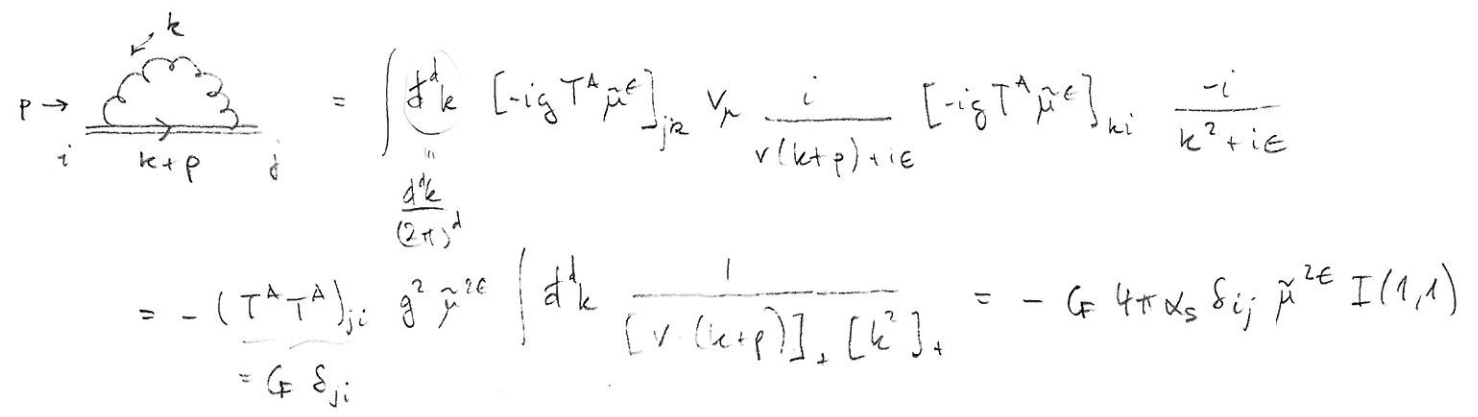 k
p → i k+p j = ∫ đ^d k [-ig T^A μ̃^ε]_{jk} v_μ \frac{i}{v(k+p)+iε} [-ig T^A μ̃^ε]_{ki} \frac{-i}{k^2+iε}
"
\frac{d^d k}{(2π)^d}
= - (T^A T^A)_{ji} g^2 μ̃^{2ε} ∫ đ^d k \frac{1}{[v·(k+p)]_+ [k^2]_+} = - C_F 4π α_s δ_{ij} μ̃^{2ε} I(1,1)
= C_F δ_{ji}